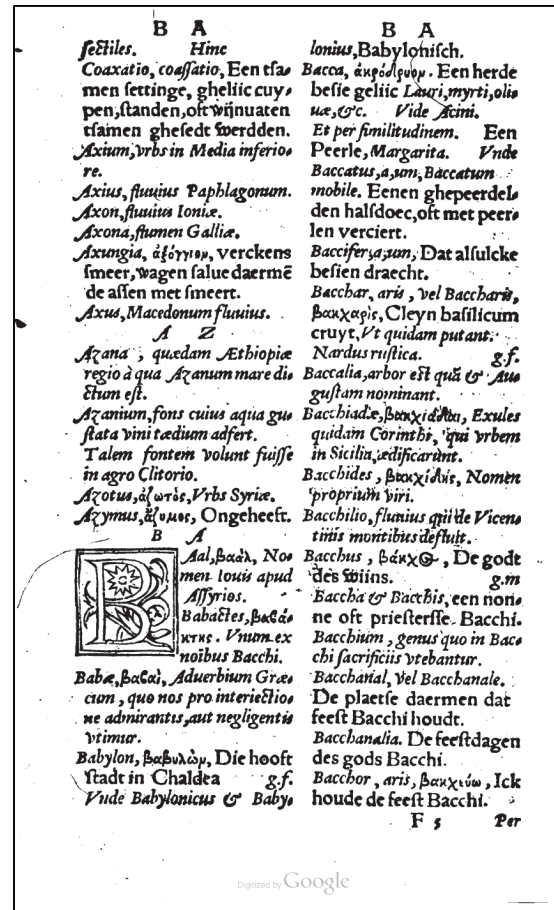 B A
sectiles. Hinc
Coaxatio, coassatio, Een tsa-
men settinge, gheliic cuy-
pen, standen, oft wijnuaten
tsamen ghesedt werdden.
Axium, vrbs in Media inferio-
re.
Axius, fluuius Paphlagonum.
Axon, fluuius Ioniæ.
Axona, flumen Galliæ.
Axungia, ἀξόγγιομ, verckens
smeer, wagen salue daermē
de assen met smeert.
Axus, Macedonum fluuius.
A Z
Azana, quædam Æthiopiæ
regio à qua Azanum mare di-
ctum est.
Azanium, fons cuius aqua gu-
stata vini tædium adfert.
Talem fontem volunt fuisse
in agro Clitorio.
Azotus, ἀζωτὸς, Vrbs Syriæ.
Azymus, ἄζυμος, Ongeheeft.
B A
BAal, βαὰλ, No-
men Iouis apud
Assyrios.
Babactes, βαβά-
κτης. Vnum ex
noībus Bacchi.
Babæ, βαβαὶ, Aduerbium Græ-
cum, quo nos pro interiectio-
ne admirantis, aut negligentis
vtimur.
Babylon, βαβυλὼμ, Die hooft
stadt in Chaldea g.f.
Vnde Babylonicus & Baby-
B A
lonius, Babylonisch.
Bacca, ἀκρόδρυομ. Een herde
besie geliic Lauri, myrti, oli-
uæ, &c. Vide Acini.
Et per similitudinem. Een
Peerle, Margarita. Vnde
Baccatus, a, um, Baccatum
mobile. Eenen ghepeerdel-
den halsdoec, oft met peer-
len verciert.
Baccifer, a, um, Dat alsulcke
besien draecht.
Bacchar, aris, vel Baccharis,
βακχαρὶς, Cleyn basilicum
cruyt, Vt quidam putant.
Nardus rustica. g.f.
Baccalia, arbor est quā & Au-
gustam nominant.
Bacchiadæ, Exules
quidam Corinthi, qui vrbem
in Sicilia ædificarunt.
Bacchides, βακχίδης, Nomen
proprium viri.
Bacchilio, fluuius qui de Vicen-
tinis montibus defluit.
Bacchus, βάκχος, De godt
des wiins. g.m
Baccha & Bacchis, een non-
ne oft priestersse Bacchi.
Bacchium, genus quo in Bac-
chi sacrificiis vtebantur.
Bacchanal, vel Bacchanale.
De plaetse daermen dat
feest Bacchi houdt.
Bacchanalia. De feestdagen
des gods Bacchi.
Bacchor, aris, βακχεύω, Ick
houde de feest Bacchi.
F 5 Per
Digitized by Google